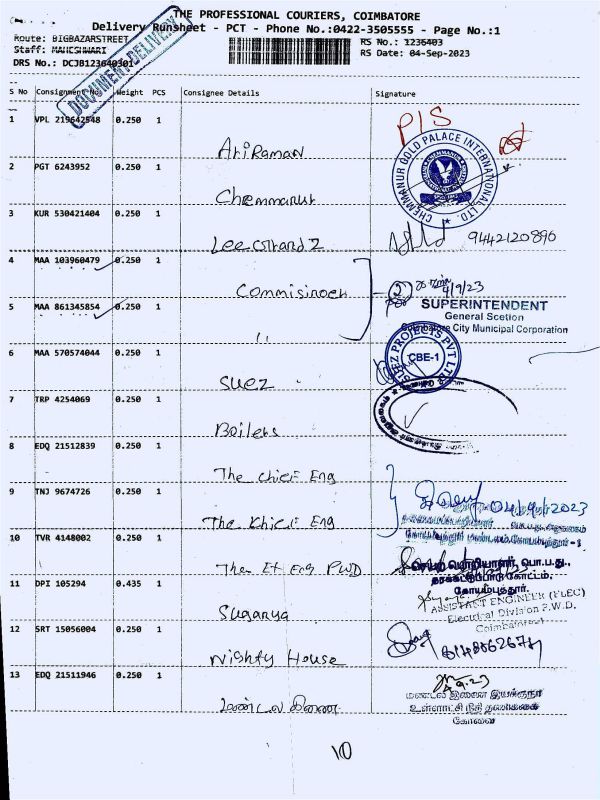 THE PROFESSIONAL COURIERS, COIMBATORE
Delivery Runsheet - PCT - Phone No.:0422-3505555 - Page No.:1
Route: BIGBAZARSTREET
RS No.: 1236403
Staff: MAHESHWARI
RS Date: 04-Sep-2023
DRS No.: DCJB123640301
DOCUMENT DELIVERY
S No Consignment No Weight PCS Consignee Details Signature
1 VPL 219642548 0.250 1
PIS
CHEMMANUR GOLD PALACE INTERNATIONAL LTD.
2 PGT 6243952 0.250 1
Chemmanur
3 KUR 530421404 0.250 1
9442120890
4 MAA 103960479 0.250 1
2
4/9/23
SUPERINTENDENT
General Scetion
Coimbatore City Municipal Corporation
5 MAA 861345854 0.250 1
"
SUEZ PROJECTS PVT LTD
CBE-1
6 MAA 570574044 0.250 1
Suez
7 TRP 4254069 0.250 1
Boilers
8 EDQ 21512839 0.250 1
The chief Eng
04/9/2023
9 TNJ 9674726 0.250 1
The Eng
10 TVR 4148002 0.250 1
The Eng PWD
செயற் பொறியாளர், பொ.ப.து.,
கோயம்புத்தூர்.
11 DPI 105294 0.435 1
Suganya
ASSISTANT ENGINEER (ELEC)
Electrical Division P.W.D.
12 SRT 15056004 0.250 1
Nighty House
13 EDQ 21511946 0.250 1
மண்டல இணை இயக்குநர்
உள்ளாட்சி நிதி தணிக்கை
கோவை
10